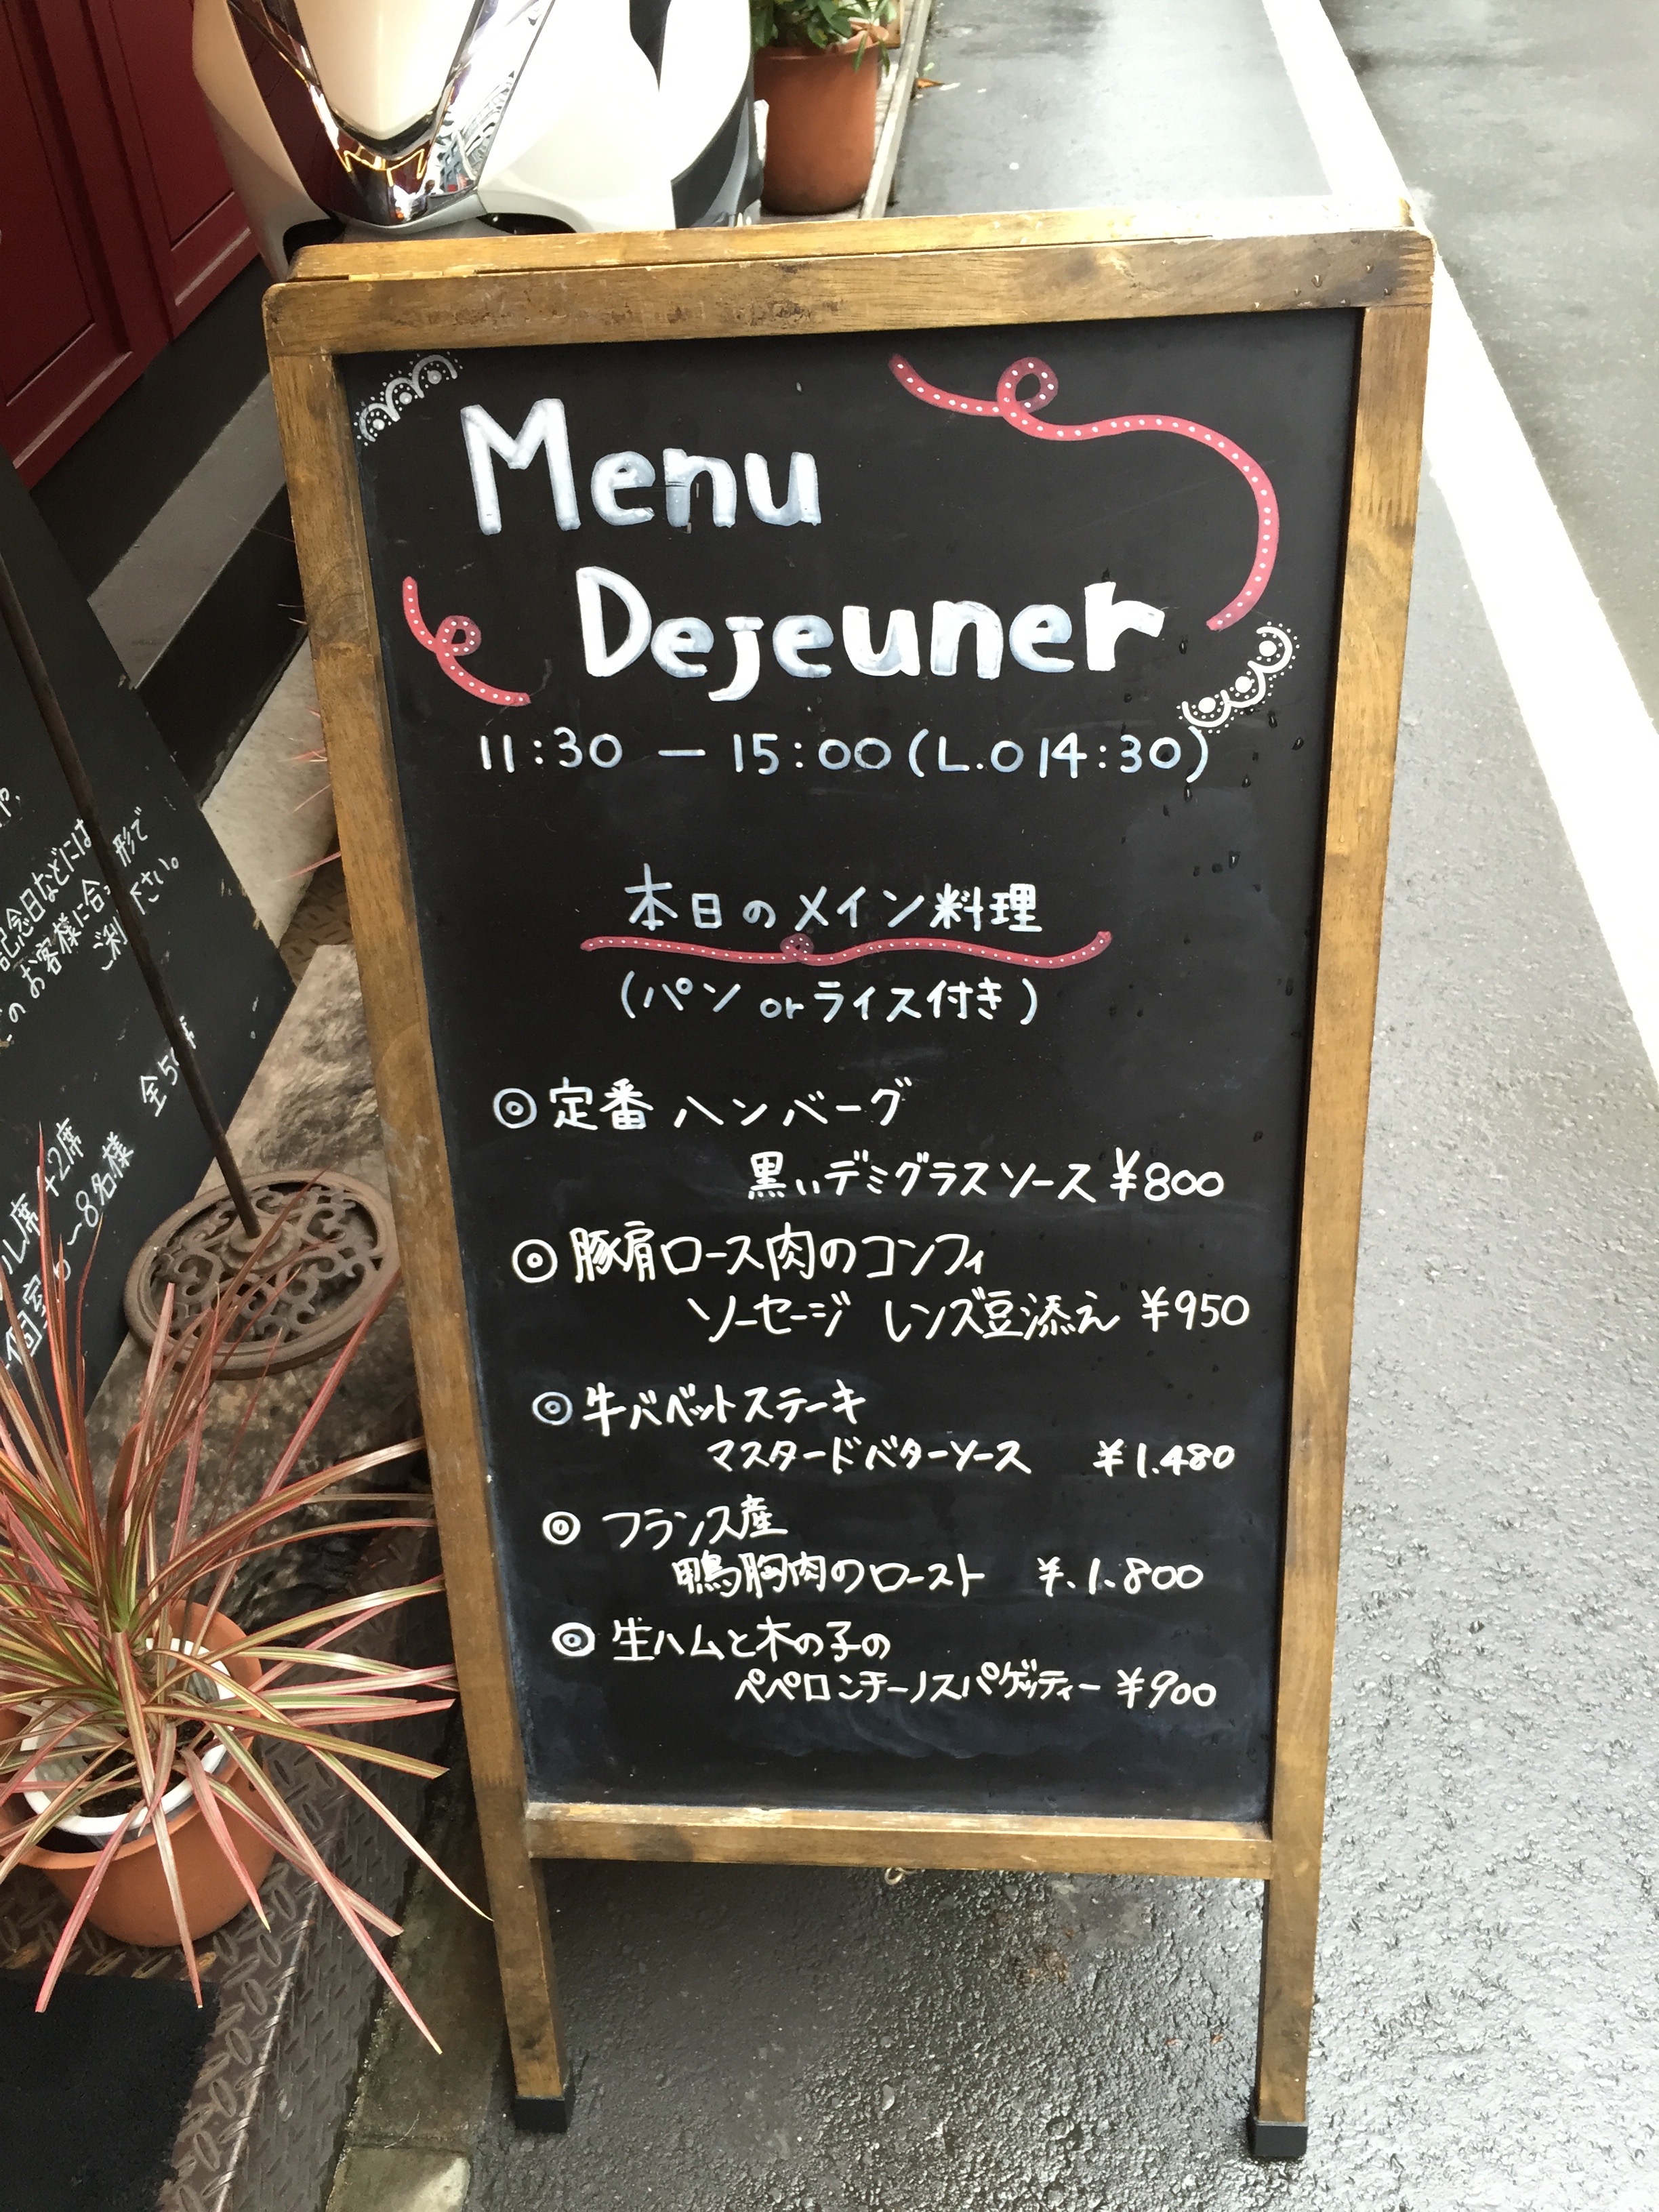 Menu
Dejeuner
11:30 — 15:00 (L.O 14:30)
本日のメイン料理
(パン or ライス付き)
◎ 定番 ハンバーグ
黒いデミグラスソース ¥800
◎ 豚肩ロース肉のコンフィ
ソーセージ レンズ豆添え ¥950
◎ 牛バベットステーキ
マスタードバターソース ¥1.480
◎ フランス産
鴨胸肉のロースト ¥.1.800
◎ 生ハムと木の子の
ペペロンチーノスパゲッティー ¥900
記念日などには
お客様に合 形で
ご利 下さい。
全5
ル席 42席
個室 ~8名様